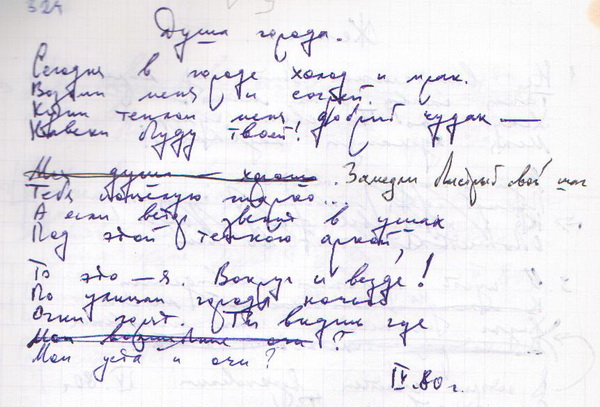 324
Душа города.
Сегодня в городе холод и мрак.
Возьми меня и согрей.
Купи теплом меня, добрый чудак —
Навеки буду твоей!
Моя душа — . Замедли быстрый свой шаг
Тебя поцелую жарко...
А если ветер звенит в ушах
Под этой темною аркой,
То это — я. Вокруг и везде!
По улицам города ночью
Огни горят. Ты видишь где
Мои очи ?
Мои уста и очи?
IV.80 г.